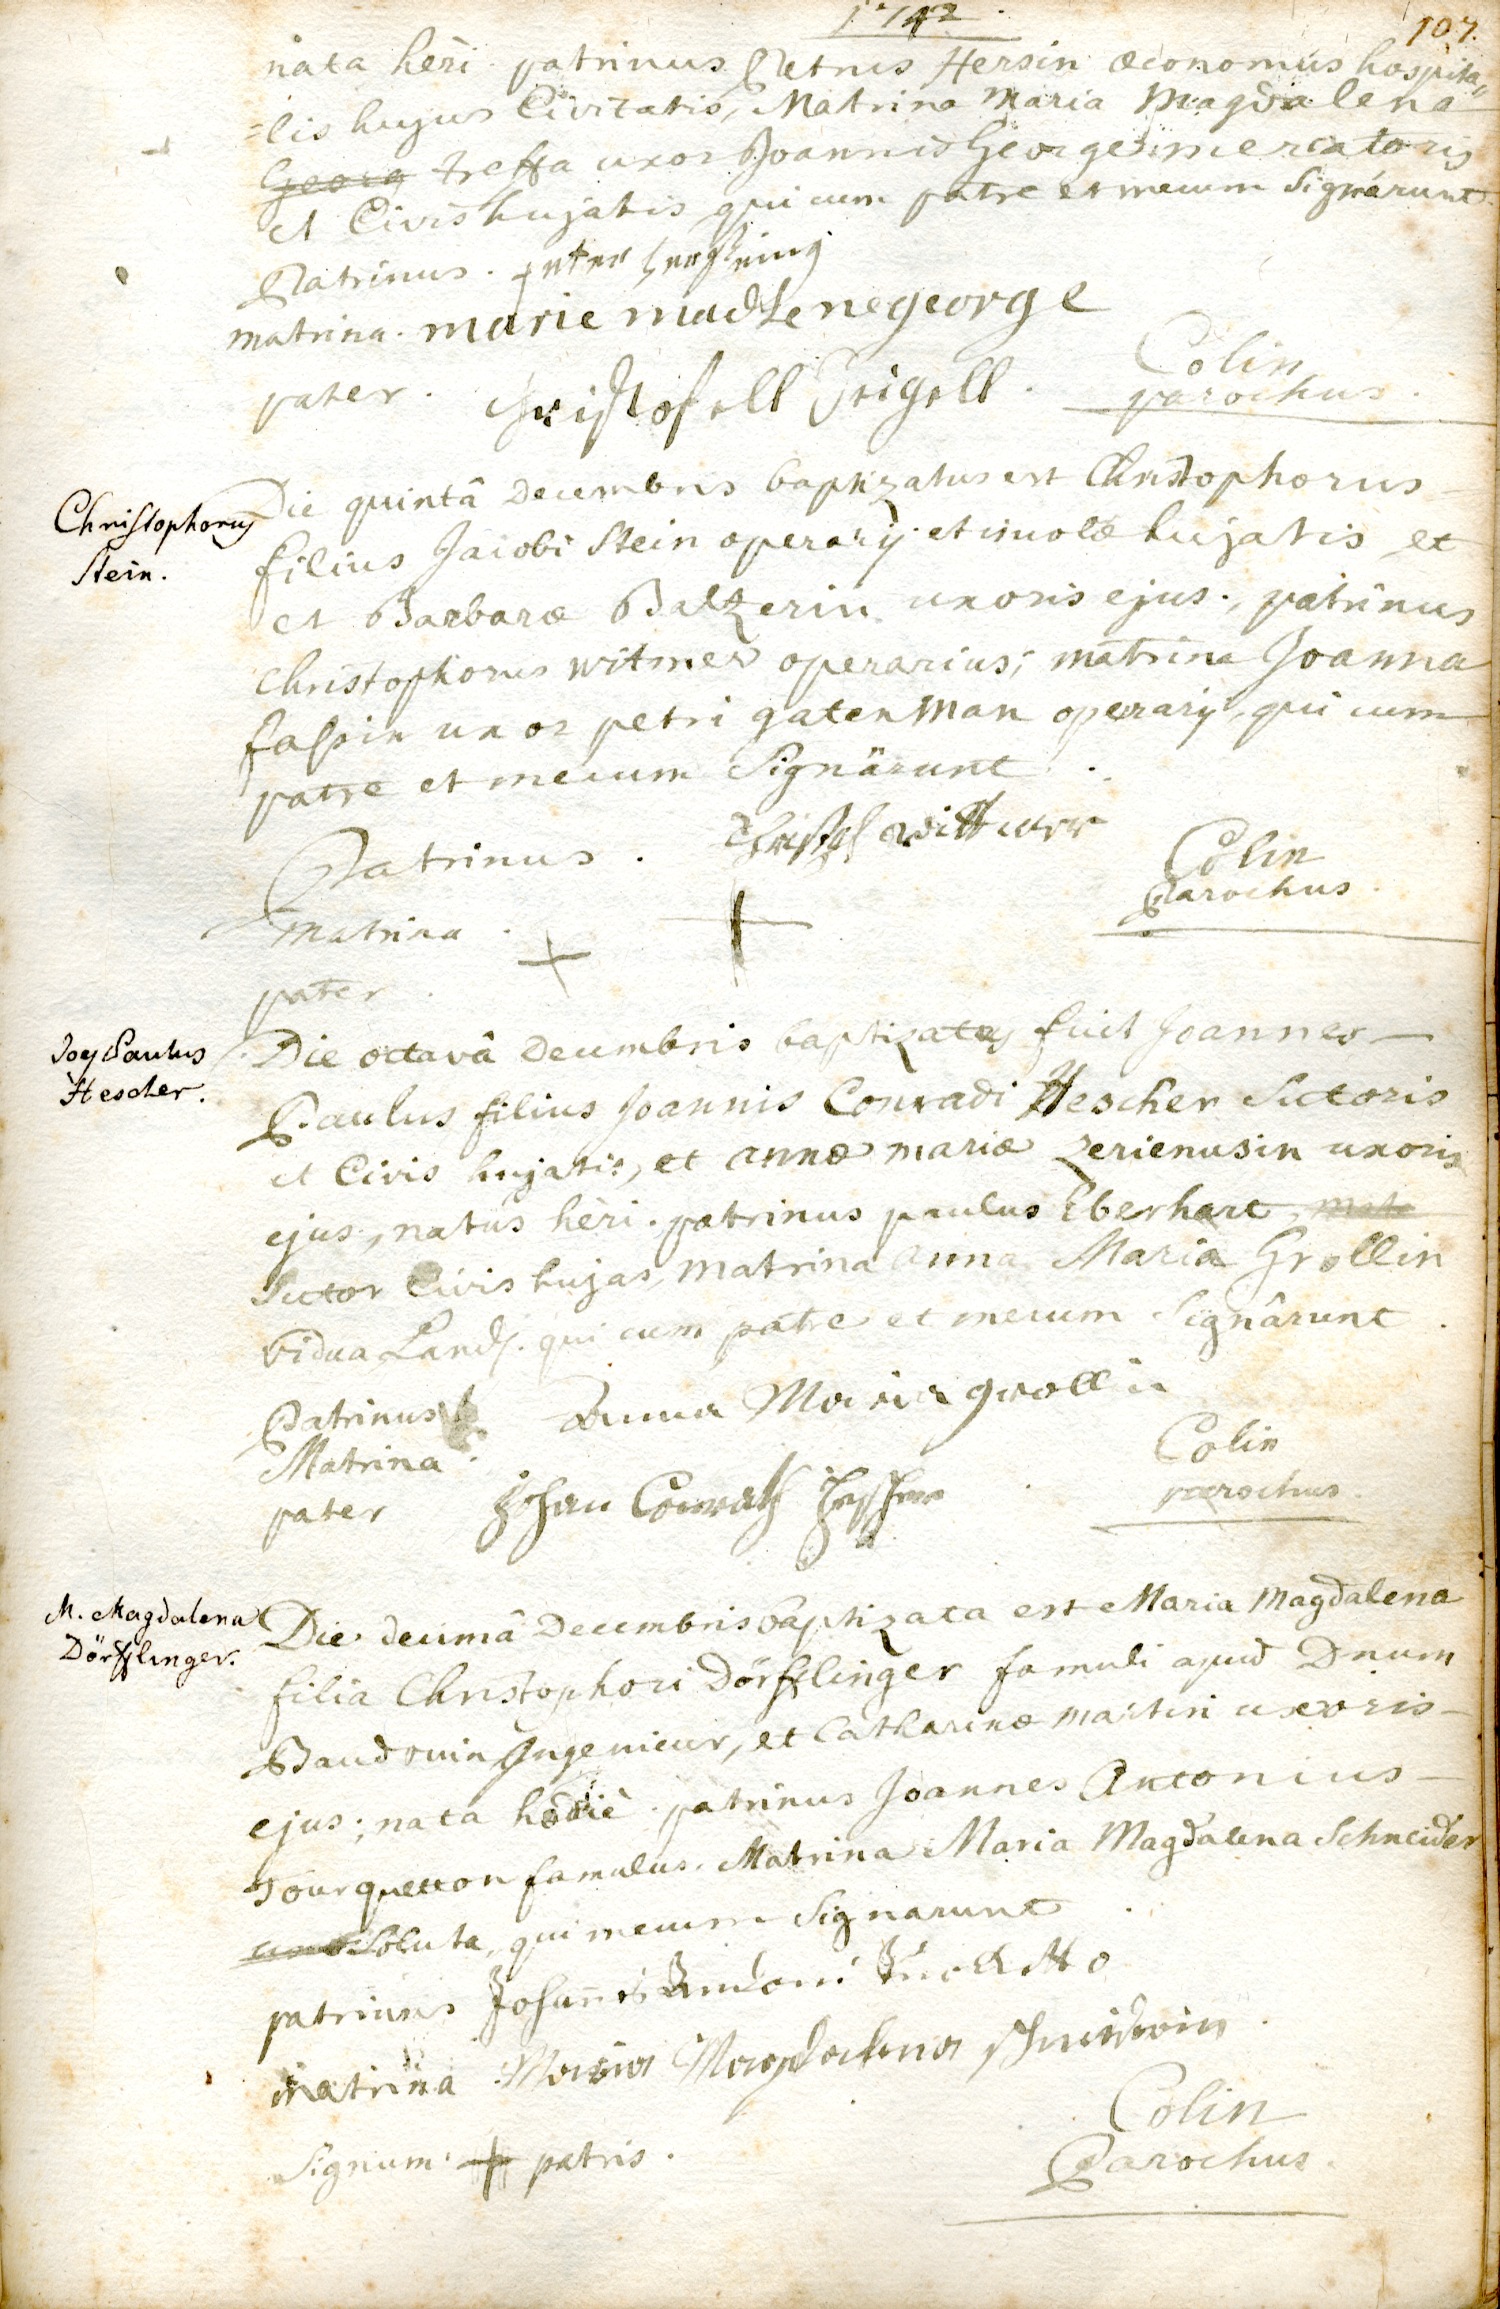 1742.
107.
nata heri. patrinus Petrus Hersin œconomus hospita„
=lis hujus Civitatis, Matrina Maria Magdalena
Georg treffa uxor Joannis George mercatoris
et Civis hujatis qui cum patre et mecum Signárunt.
Patrinus. peter
matrina. marie madlenegeorge
Colin
pater. Cristofell
parochus.
Christophorus
Stein.
Die quintâ Decembris baptizatus est Christophorus
filius Jacobi Stein operarij et incolæ hujatis et
et Barbaræ Baltzerin uxoris ejus., patrinus
Christophorus witmer operarius; matrina Joanna
fassin uxor petri gatenman operarij, qui cum
patre et mecum Signârunt.
Patrinus.
Colin
Parochus.
Matrina. +
pater. +
Joes Paulus
Hescher.
Die octavâ Decembris baptizatus fuit Joannes
Paulus filius Joannis Conradi Hescher Sutoris
et Civis hujatis, et annæ mariæ Zerienusin uxoris
ejus, natus heri. patrinus paulus Eberhart, mat
Sutor Civis hujas, matrina anna Maria Grollin
vidua qui cum patre et mecum Signârunt.
Patrinus
Anna Maria grollin
Matrina.
Colin
pater Johan Conrath
parochus.
M. Magdalena
Dörfflinger.
Die decimâ Decembris baptizata est Maria Magdalena
filia Christophori Dörfflinger famuli apud Dnum
Baudouin Ingenieur, et Catharinæ martin uxoris
ejus; nata hodiè. patrinus Joannes Antonius
Tourquetton famulus. Matrina Maria Magdalena Schneider
uxo Soluta, qui mecum Signarunt.
patrinus Johannes Antoni
matrina Maria Magdalena schneiderin
Colin
Signum + patris.
Parochus.